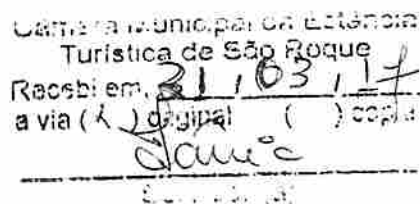 Câmara Municipal da Estância
Turística de São Roque
Recebi em, 31 / 03 / 17
a via (X) original ( ) copia